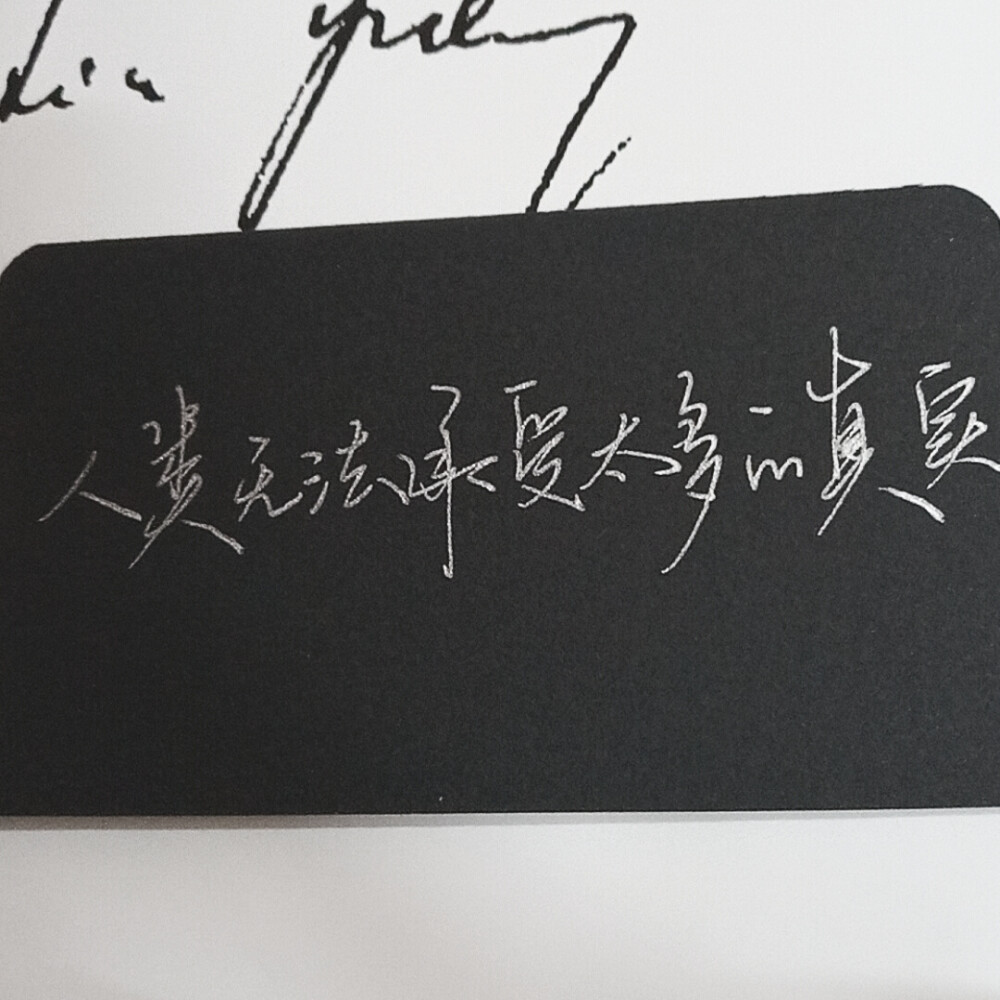 人类无法承受太多的真实